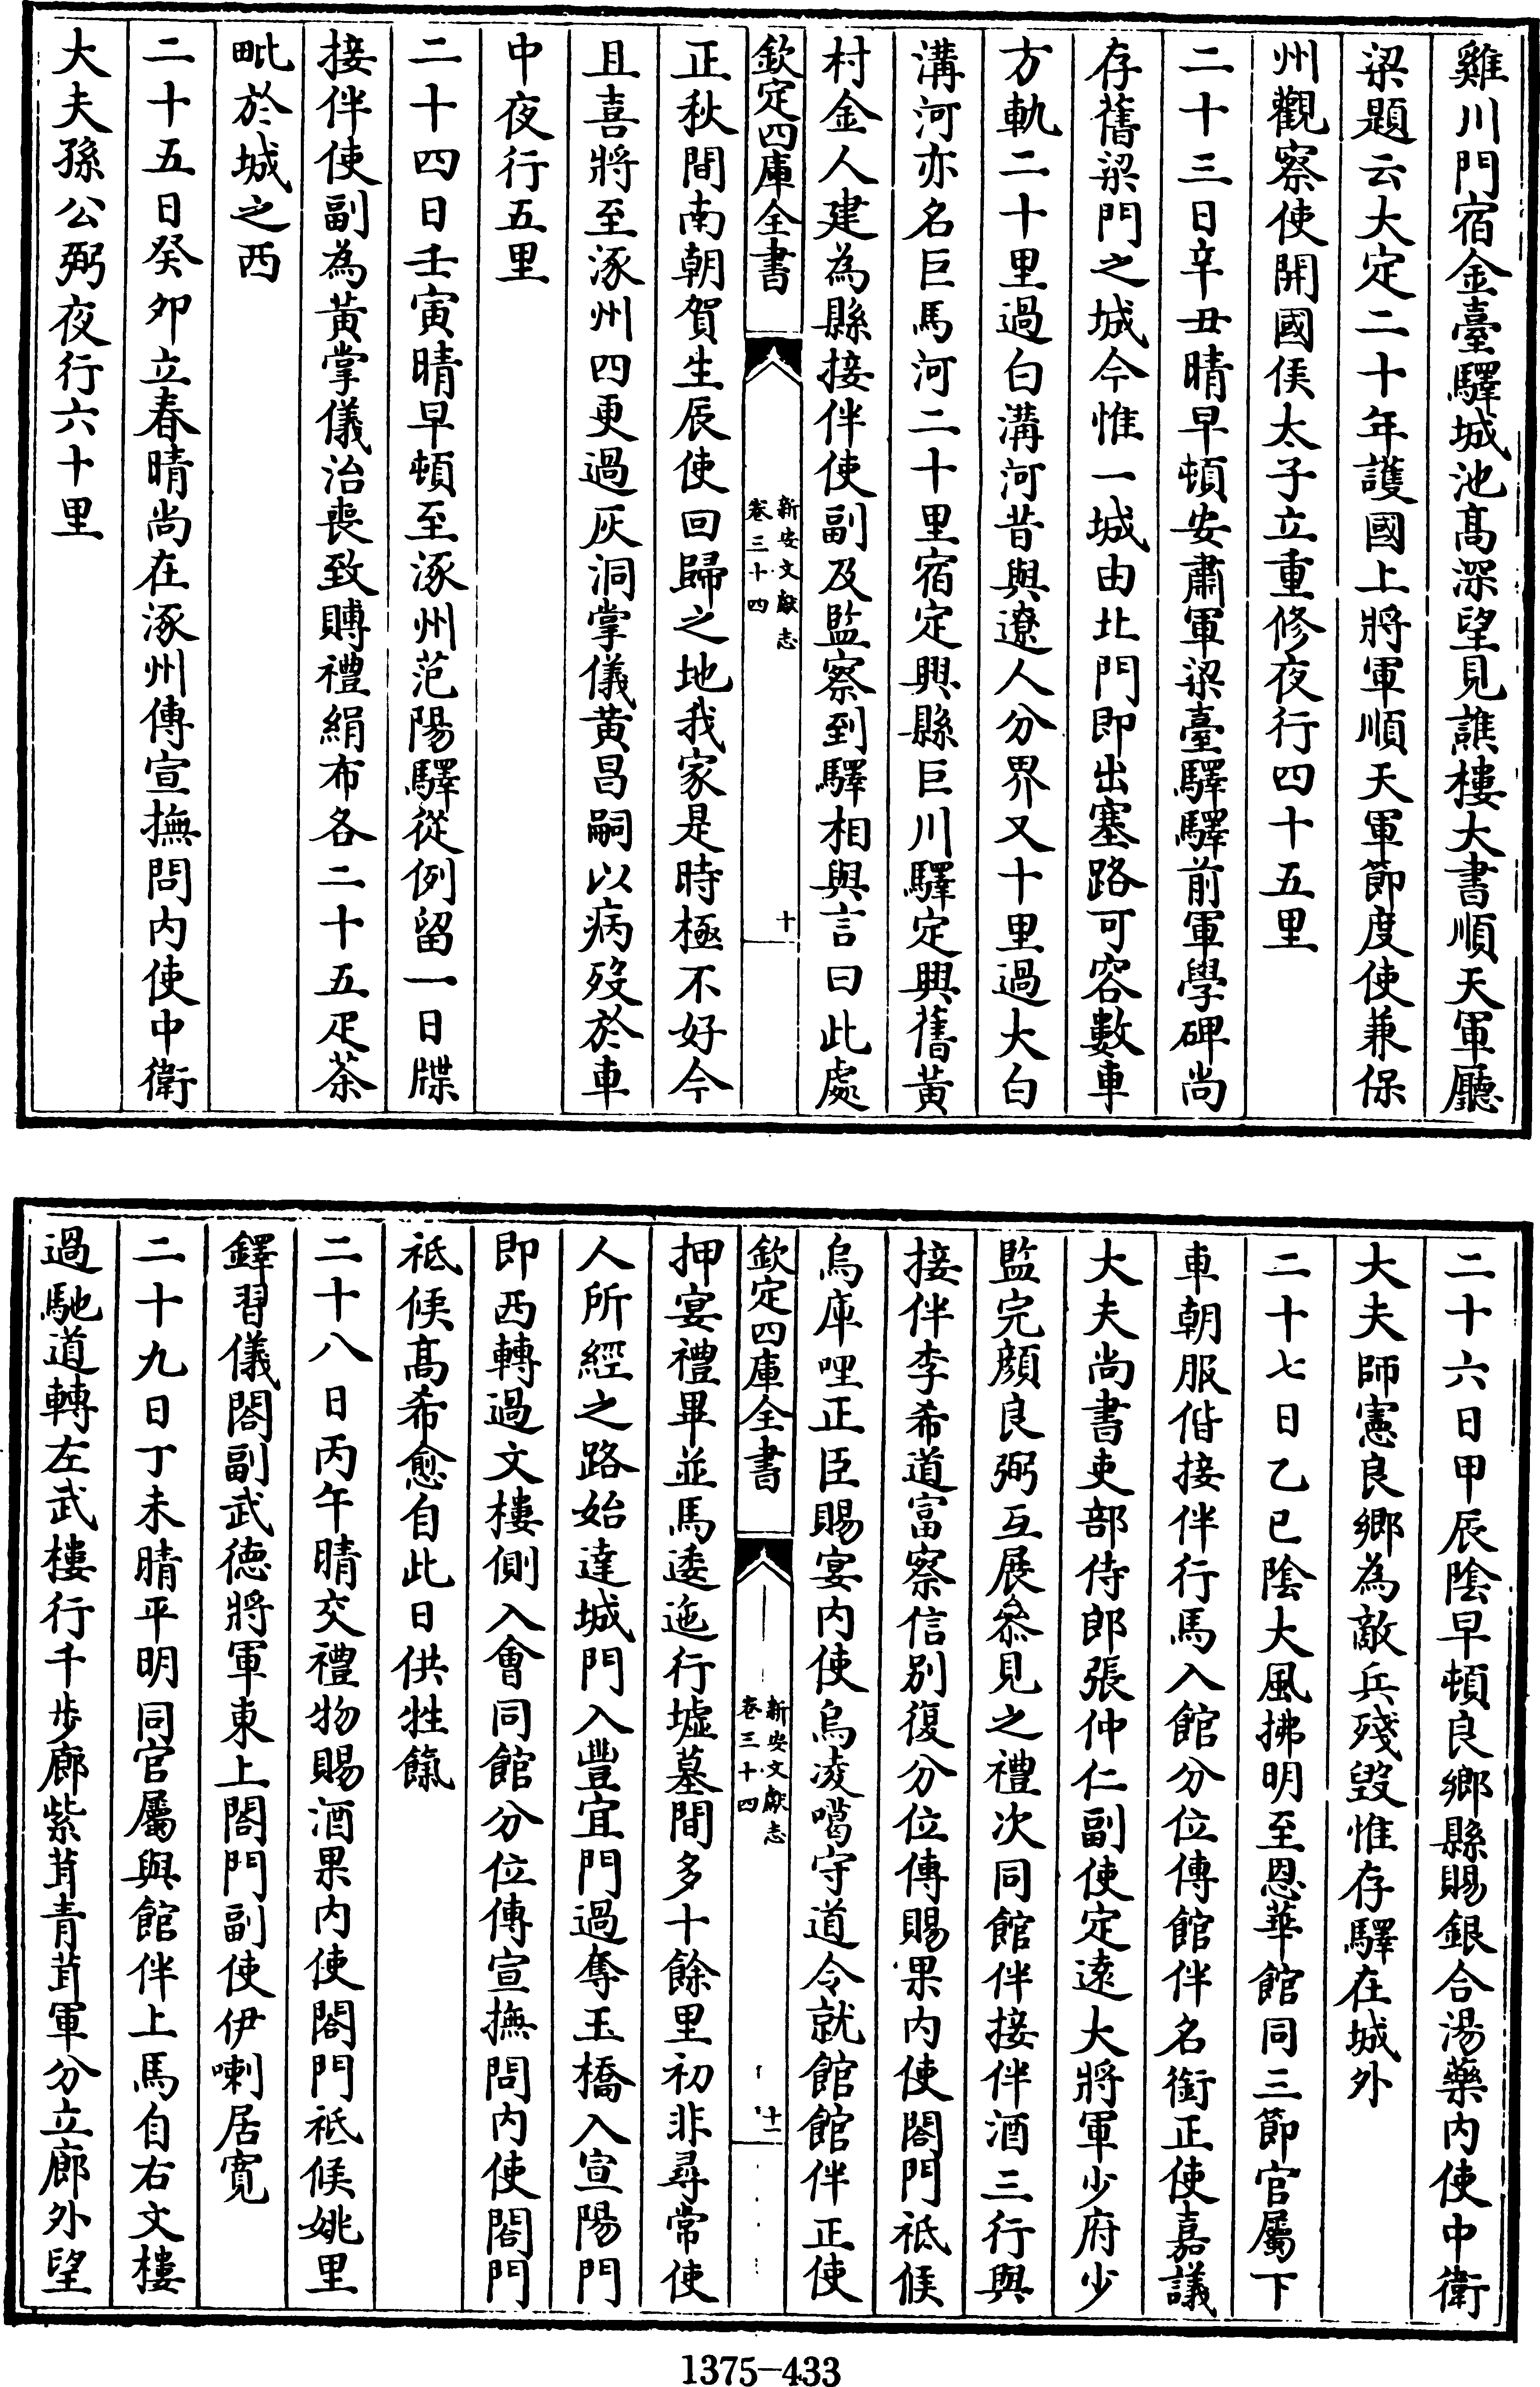 雞川門宿金臺驛城池髙深望見譙樓大書順天軍廳
梁題云大定二十年護國上將軍順天軍節度使兼保
州觀察使開國侯太子立重修夜行四十五里
二十三日辛丑晴早頓安肅軍梁臺驛驛前軍學碑尚
存舊梁門之城今惟一城由北門即出塞路可容數車
方軌二十里過白溝河昔與遼人分界又十里過大白
溝河亦名巨馬河二十里宿定興縣巨川驛定興舊黃
村金人建為縣接伴使副及監察到驛相與言曰此處
欽定四庫全書
新安文獻志
卷三十四
十
正秋間南朝賀生辰使回歸之地我家是時極不好今
且喜將至涿州四更過灰洞掌儀黃昌嗣以病歿於車
中夜行五里
二十四日壬寅晴早頓至涿州范陽驛從例留一日牒
接伴使副為黃掌儀治喪致賻禮絹布各二十五疋茶
毗於城之西
二十五日癸夘立春晴尚在涿州傳宣撫問内使中衛
大夫孫公弼夜行六十里
二十六日甲辰陰早頓良鄉縣賜銀合湯藥内使中衛
大夫師憲良鄉為敵兵殘毀惟存驛在城外
二十七日乙巳陰大風拂明至恩華館同三節官屬下
車朝服偕接伴行馬入館分位傳館伴名銜正使嘉議
大夫尚書吏部侍郎張仲仁副使定遠大將軍少府少
監完顔良弼互展叅見之禮次同館伴接伴酒三行與
接伴李希道富察信别復分位傳賜果内使閤門祗候
烏庫哩正臣賜宴内使烏凌噶守道令就館館伴正使
欽定四庫全書
新安文獻志
卷三十四
十一
押宴禮畢並馬逶迤行墟墓間多十餘里初非尋常使
人所經之路始達城門入豐宜門過奪玉橋入宣陽門
即西轉過文樓側入會同館分位傳宣撫問内使閤門
祗候髙希愈自此日供牲餼
二十八日丙午晴交禮物賜酒果内使閤門祗候姚里
鐸習儀閤副武徳將軍東上閤門副使伊喇居寛
二十九日丁未晴平明同官屬與館伴上馬自右文樓
過馳道轉左武樓行千歩廊紫茸青茸軍分立廊外望
1375—433